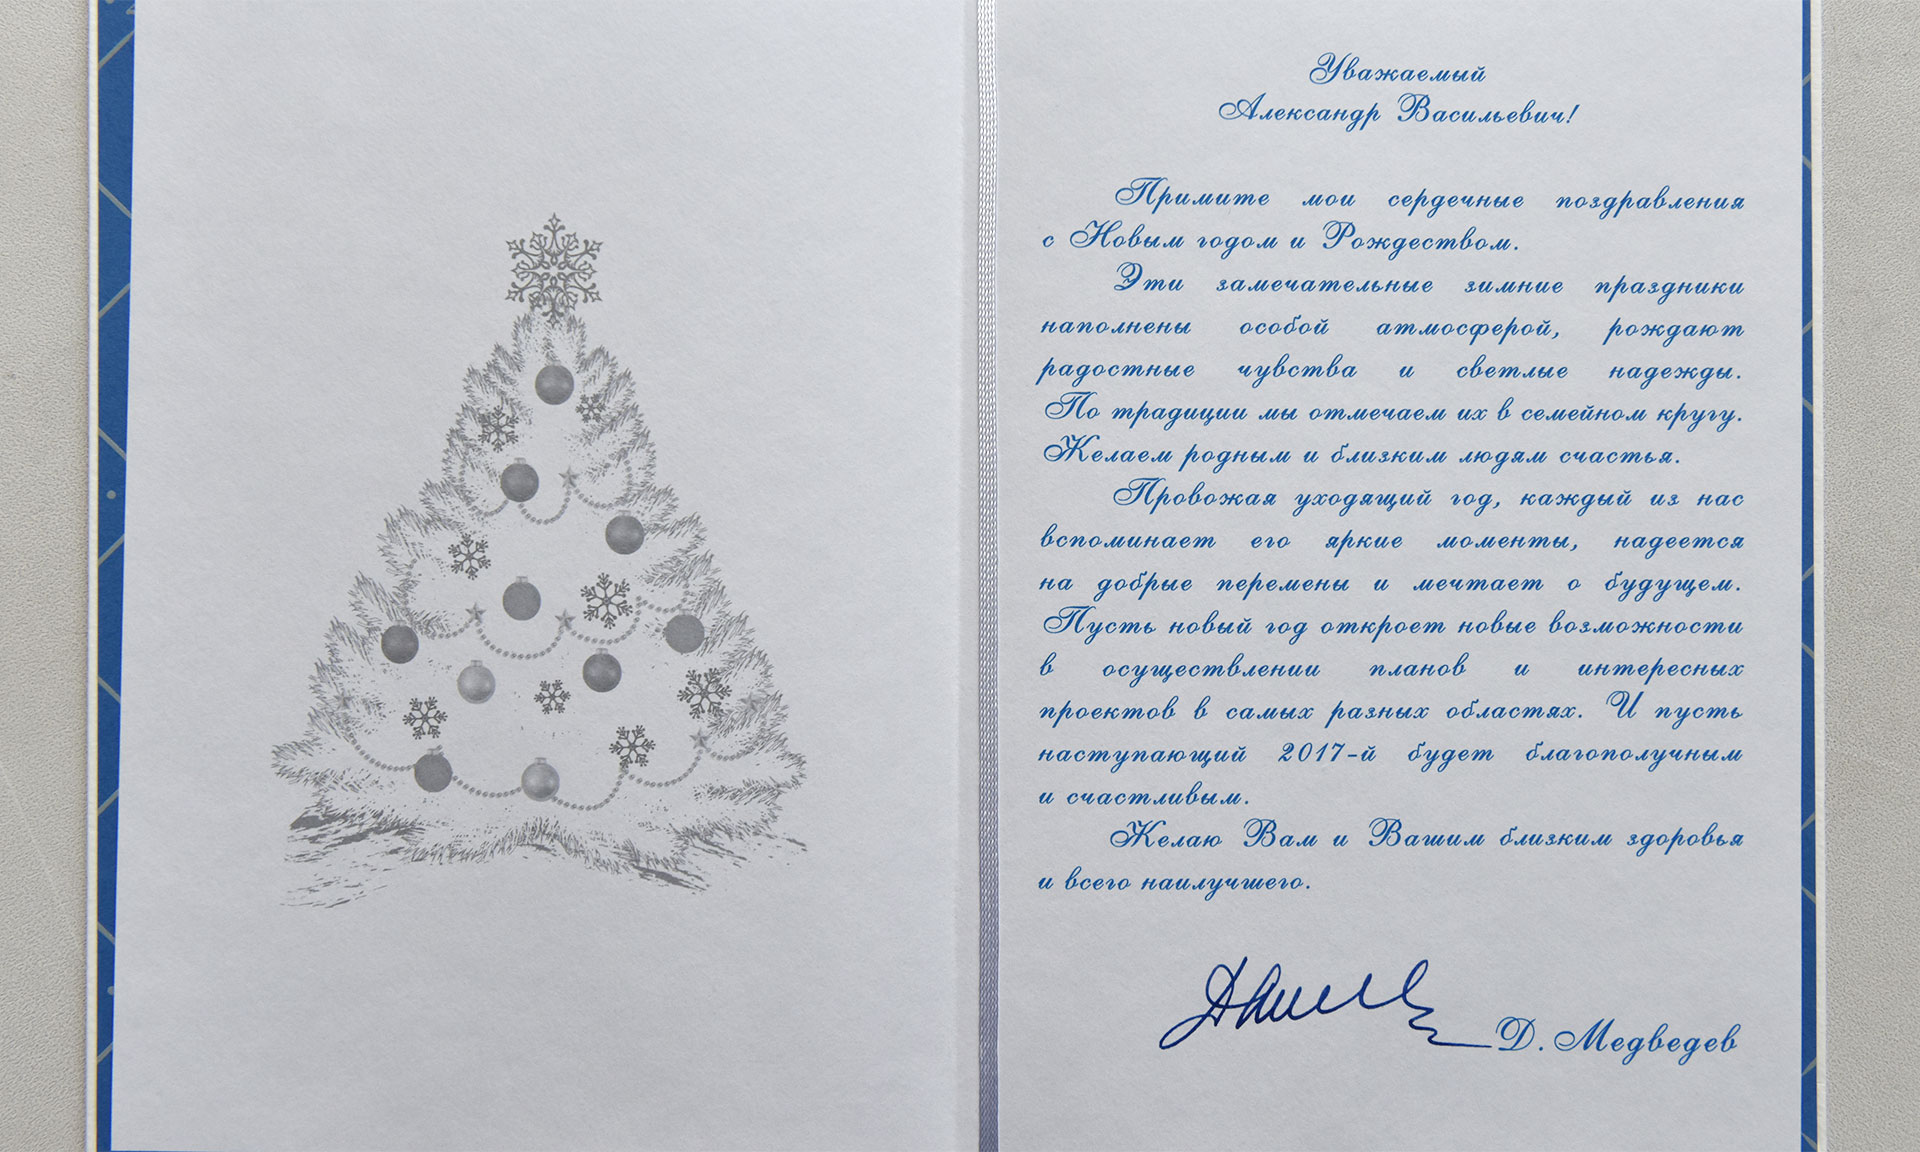 Уважаемый
Александр Васильевич!
Примите мои сердечные поздравления
с Новым годом и Рождеством.
Эти замечательные зимние праздники
наполнены особой атмосферой, рождают
радостные чувства и светлые надежды.
По традиции мы отмечаем их в семейном кругу.
Желаем родным и близким людям счастья.
Провожая уходящий год, каждый из нас
вспоминает его яркие моменты, надеется
на добрые перемены и мечтает о будущем.
Пусть новый год откроет новые возможности
в осуществлении планов и интересных
проектов в самых разных областях. И пусть
наступающий 2017-й будет благополучным
и счастливым.
Желаю Вам и Вашим близким здоровья
и всего наилучшего.
Д. Медведев